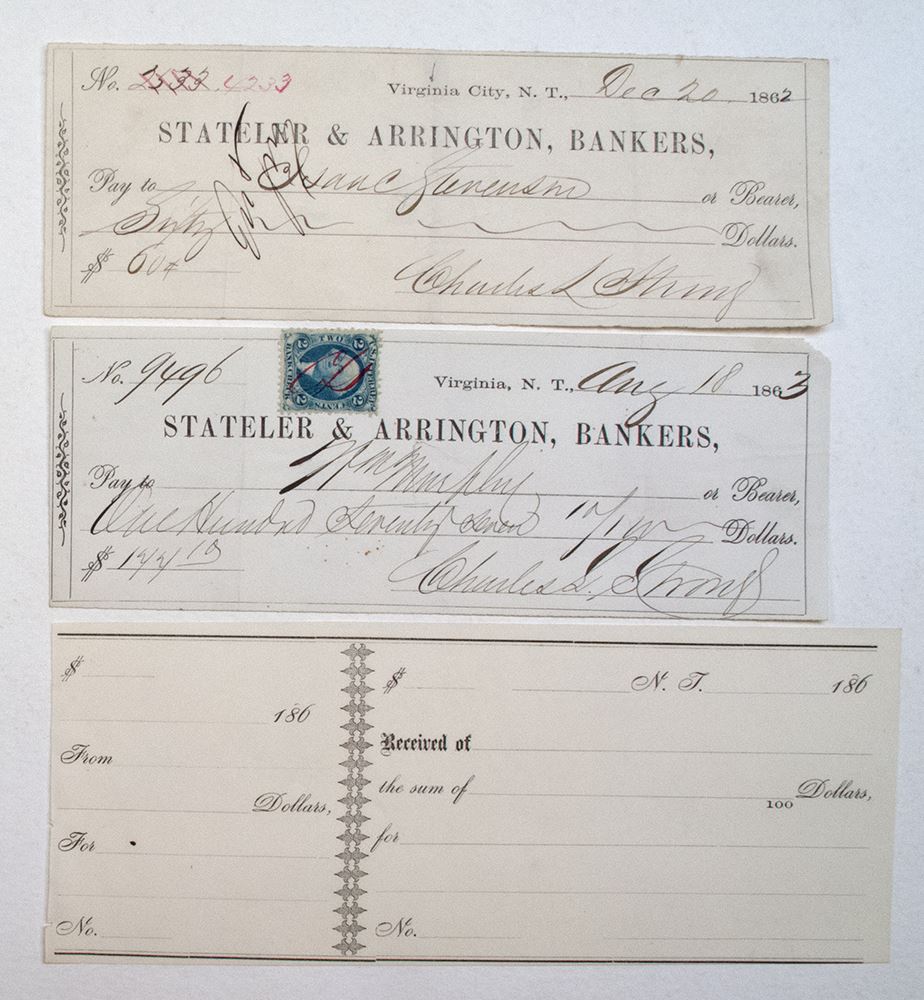 No. 4233
Virginia City, N. T., Dec 20 1862
STATELER & ARRINGTON, BANKERS,
Pay to Isaac Stevenson or Bearer,
Sixty Dollars.
$ 60
Charles L Strong
No. 9496
TWO
BANK CHECK
CENTS
2 2 2 2
Virginia, N. T., Aug 18 1863
STATELER & ARRINGTON, BANKERS,
Pay to Wm Murphy or Bearer,
One Hundred Seventy seven 10/100 Dollars.
$ 177 10
Charles L. Strong
$
186
From
Dollars,
For
No.
$ N. T. 186
Received of
the sum of 100 Dollars,
for
No.